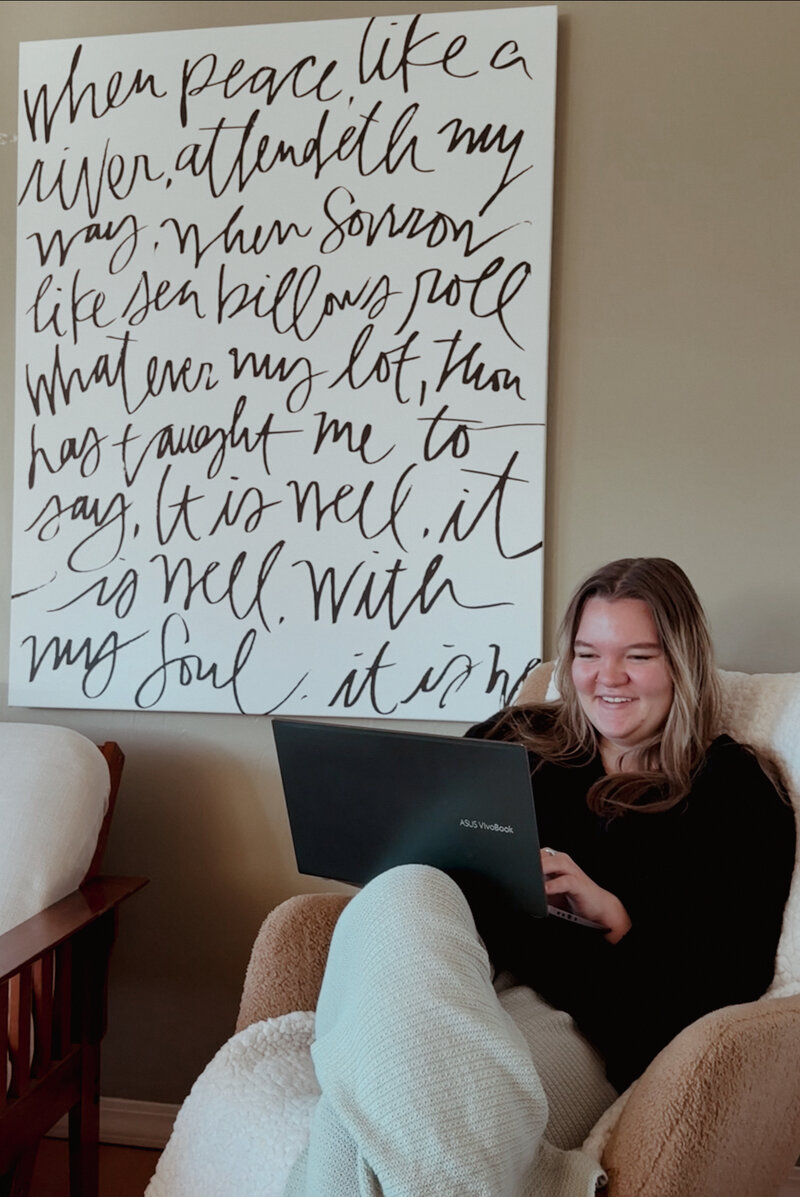 when peace, like a
river, attendeth my
way, when Sorrow
like sea billows roll
whatever my lot, thou
has taught me to
say, It is well, it
is well, with
my Soul. it is
ASUS VivoBook